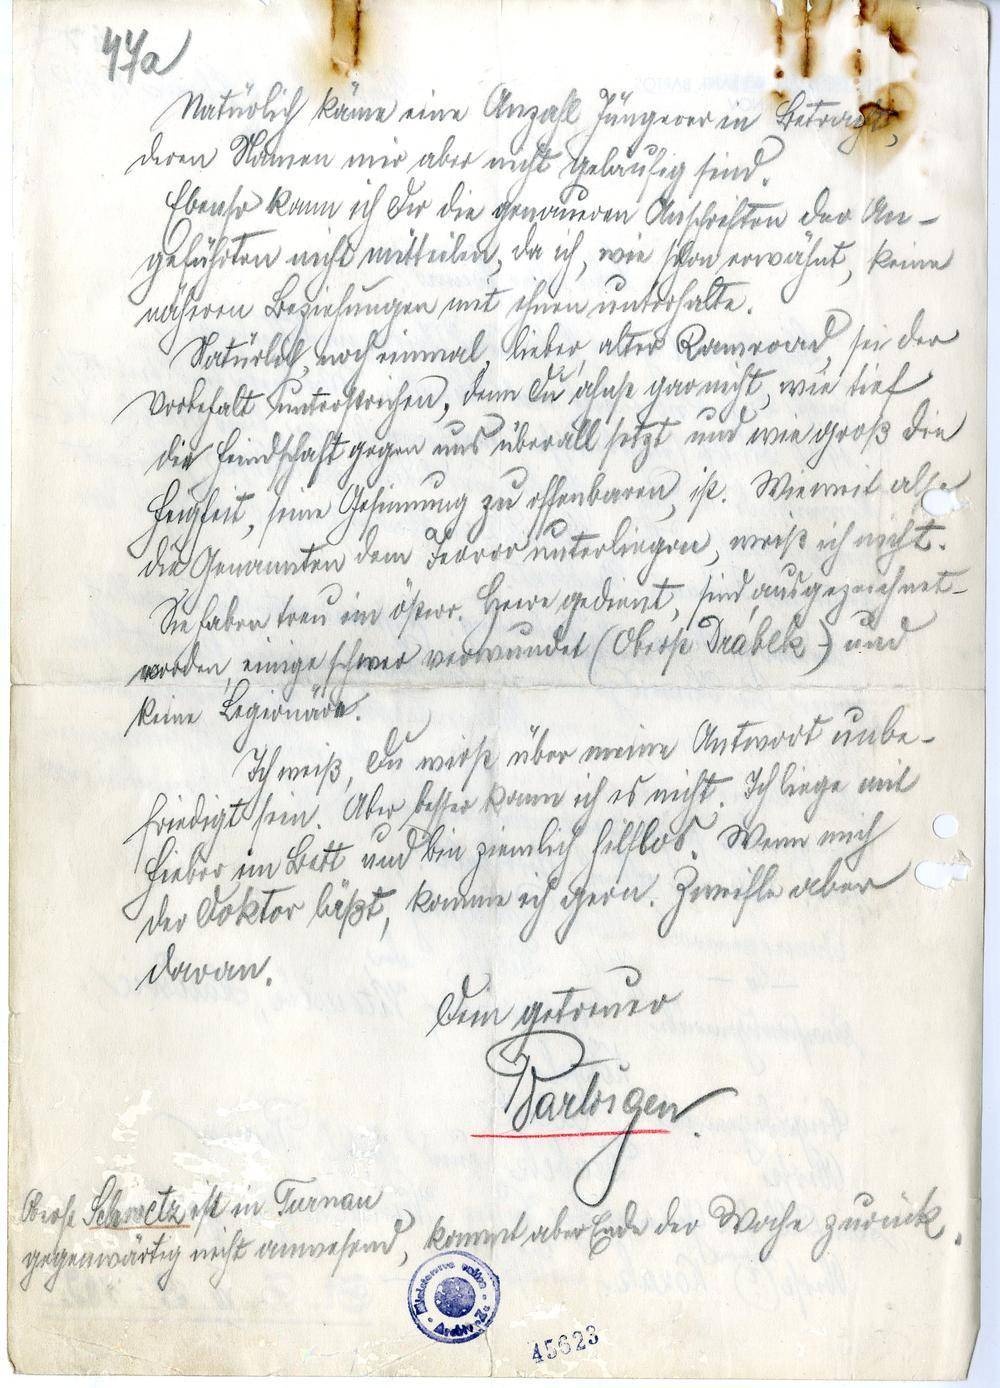 44a
Natürlich käme eine Anzahl Jüngerer in Betracht,
deren Namen mir aber nicht geläufig sind.
Ebenso kann ich Dir die genaueren Anschriften der An-
geführten nicht mitteilen, da ich, wie schon erwähnt, keine
näheren Beziehungen mit ihnen unterhalte.
Natürlich, noch einmal, lieber, alter Kamerad, sei der
Vorbehalt unterstrichen, denn Du ahnst gar nicht, wie tief
die Feindschaft gegen uns überall sitzt und wie groß die
Feigheit, seine Gesinnung zu offenbaren, ist. Wieweit also
die Genannten dem Terror unterliegen, weiß ich nicht.
Sie haben treu im österr. Heere gedient, sind ausgezeichnet
worden, einige schwer verwundet (Oberst Drábek) und
keine Legionäre.
Ich weiß, Du wirst über meine Antwort unbe-
friedigt sein. Aber besser kann ich es nicht. Ich liege mit
Fieber im Bett und bin ziemlich hilflos. Wenn mich
der Doktor läßt, komme ich gern. Zweifle aber
daran.
Dein getreuer
Oberst Schwetz ist in Turnau
gegenwärtig nicht anwesend, kommt aber Ende der Woche zurück.
45623